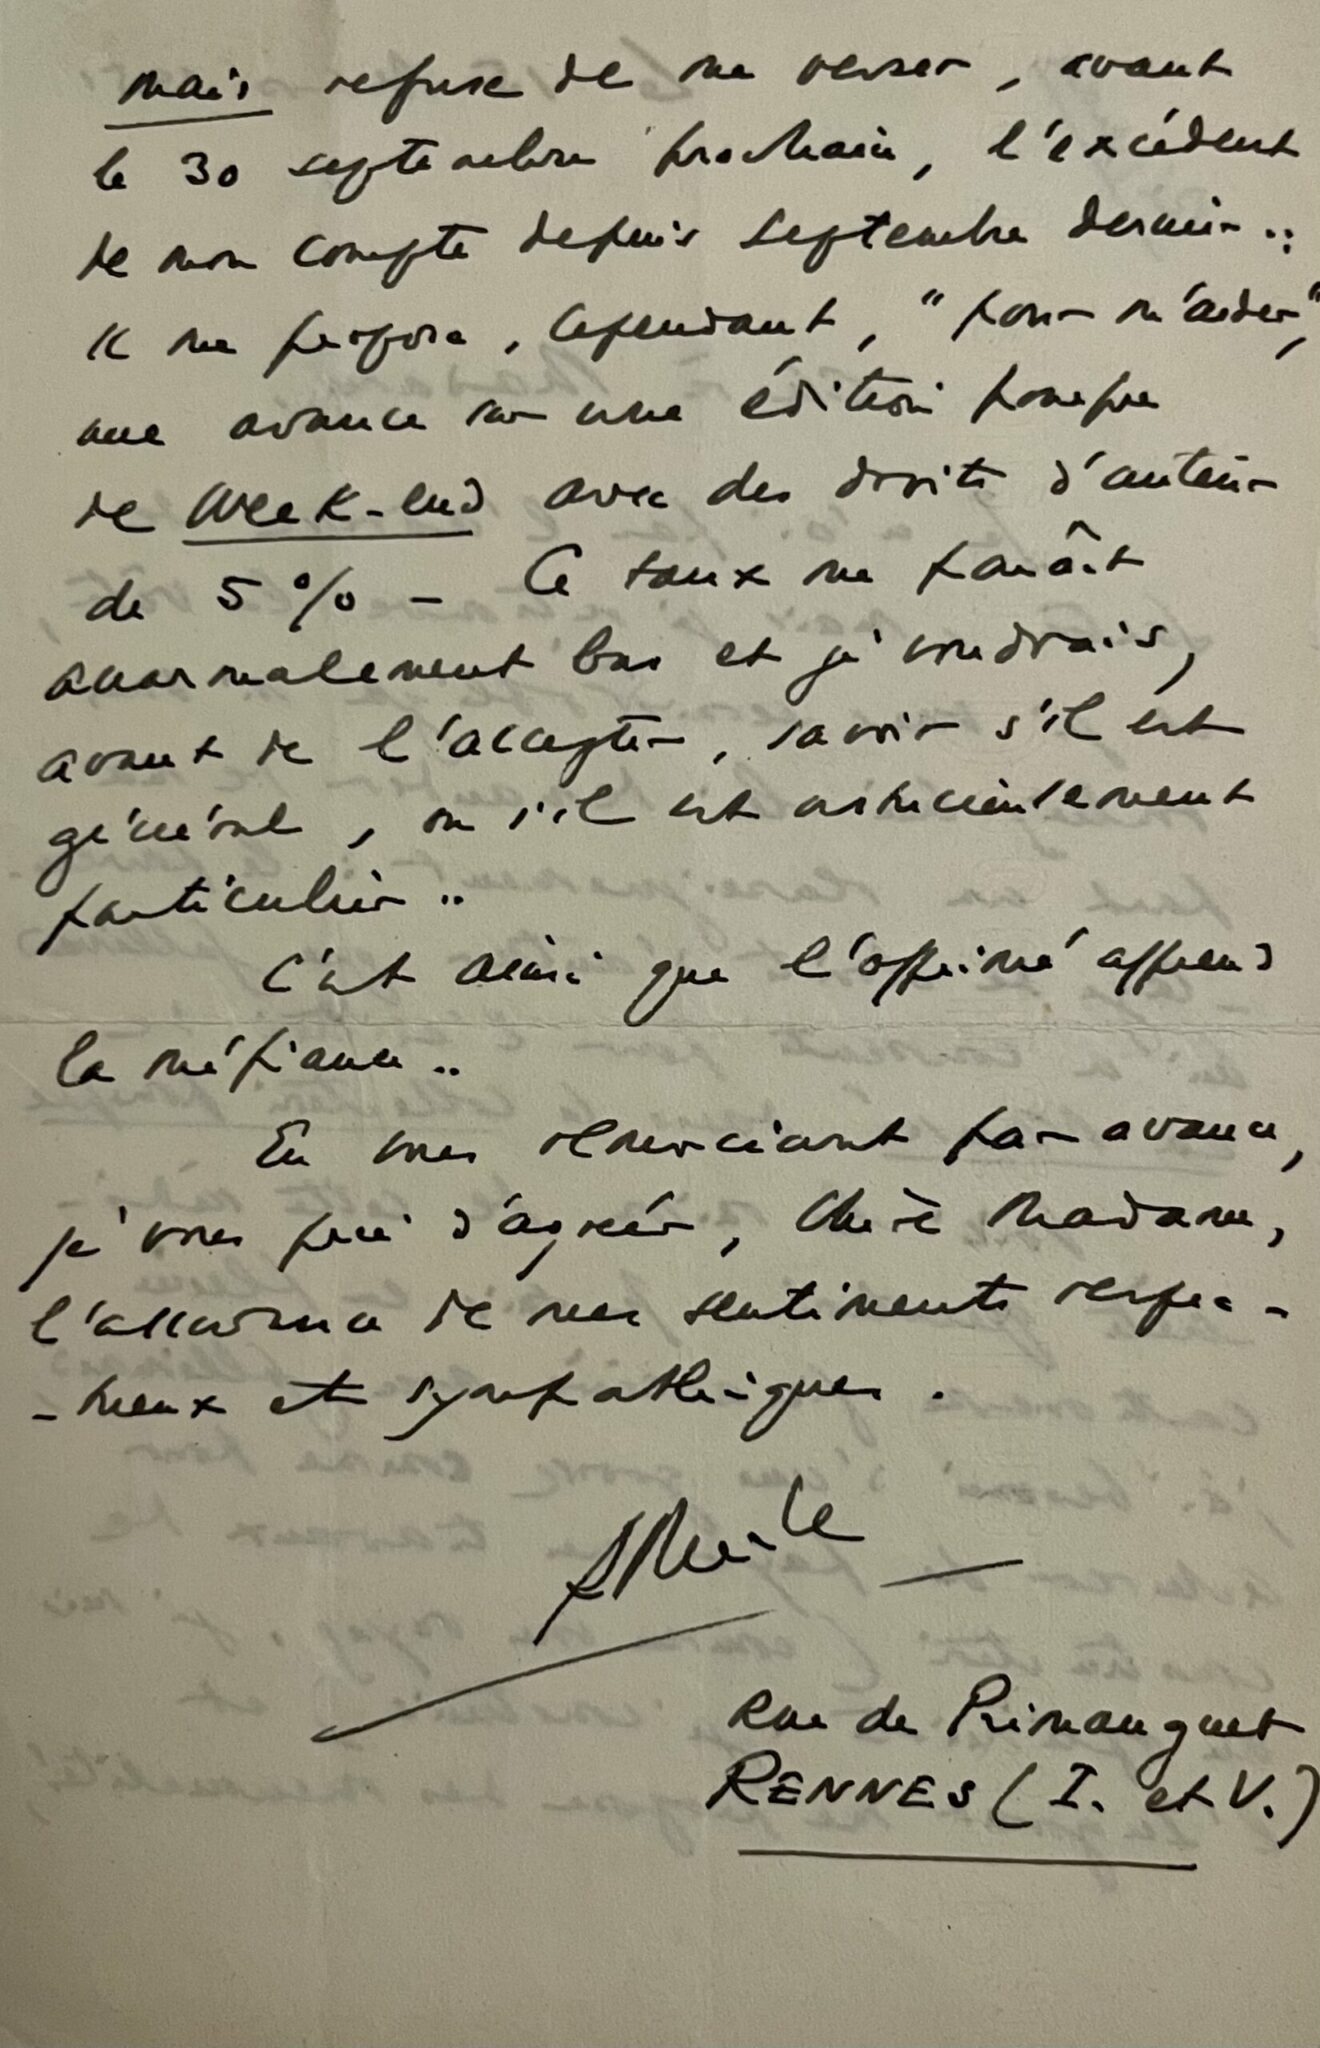 mais refuse de me verser, avant
le 30 septembre prochain, l'excédent
de mon compte depuis septembre dernier..
Il me propose, cependant, "pour m'aider",
une avance sur une édition pompée
de Week-end avec des droits d'auteur
de 5% - Ce taux me paraît
anormalement bas et je voudrais,
avant de l'accepter, savoir s'il est
général, ou s'il est astucieusement
particulier..
C'est ainsi que l'opprimé apprend
la méfiance..
En vous remerciant par avance,
je vous prie d'agréer, Chère Madame,
l'assurance de mes sentiments respec-
-tueux et sympathiques.
Rue de Primauguet
RENNES (I. et V.)